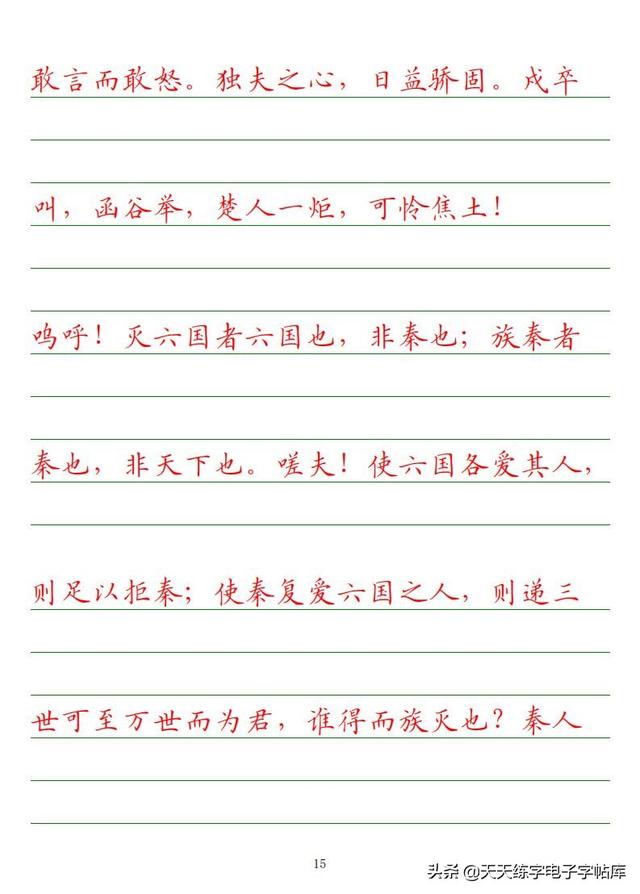 敢言而敢怒。独夫之心，日益骄固。戍卒
叫，函谷举，楚人一炬，可怜焦土！
呜呼！灭六国者六国也，非秦也；族秦者
秦也，非天下也。嗟夫！使六国各爱其人，
则足以拒秦；使秦复爱六国之人，则递三
世可至万世而为君，谁得而族灭也？秦人
15
头条 @天天练字电子字帖库